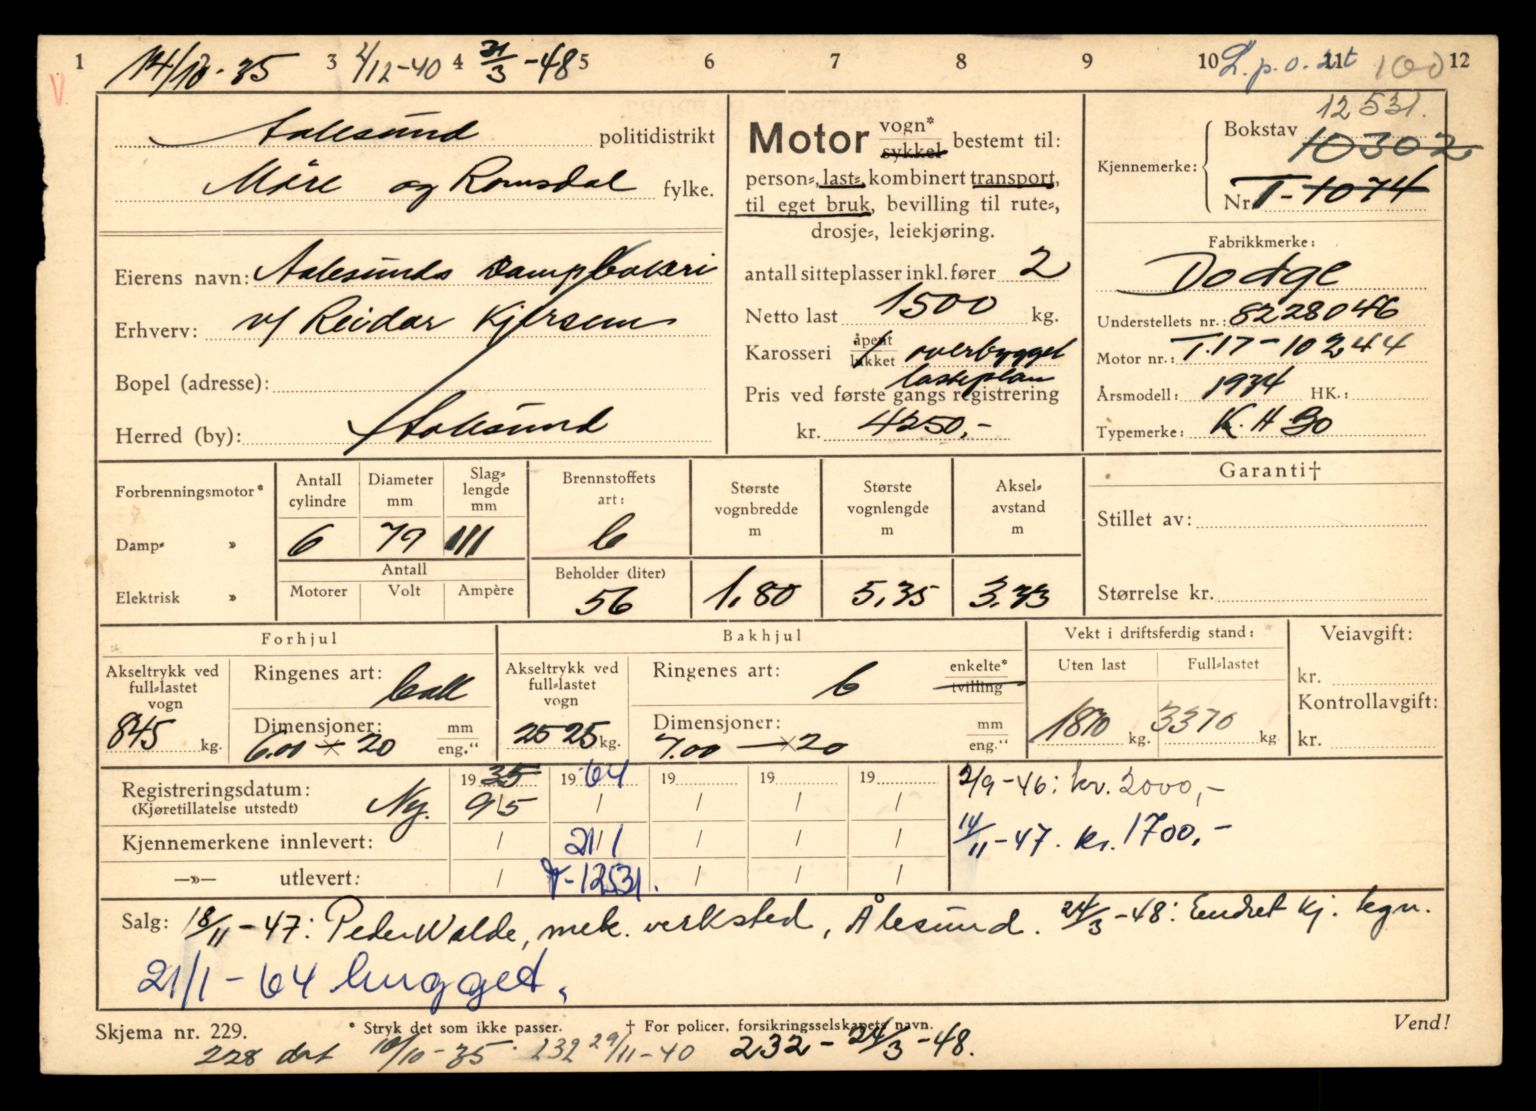 1 14/10-35 3 4/12-40 4 31/3-48 5 6 7 8 9 10 L.p.o. 2t 11 100 12
V
Aalesund politidistrikt
Møre og Romsdal fylke.
Eierens navn: Aalesunds Dampbakeri
Erhverv: v/ Reidar Kjersem
Bopel (adresse):
Herred (by): Aalesund
Motor vogn* sykkel bestemt til:
person=, last=, kombinert transport,
til eget bruk, bevilling til rute=,
drosje=, leiekjøring.
antall sitteplasser inkl. fører 2
Netto last 1500 kg.
Karosseri åpent lukket overbygget
lasteplan
Pris ved første gangs registrering
kr. 4250,-
12531.
Kjennemerke: Bokstav 10302
Nr. T-1074
Fabrikkmerke:
Dodge
Understellets nr.: 8228046
Motor nr.: T.17-10244
Årsmodell: 1934 HK.:
Typemerke: K.H 30
Forbrenningsmotor* Antall cylindre Diameter mm Slag=lengde mm Brennstoffets art: Største vognbredde m Største vognlengde m Aksel=avstand m
Damp= » 6 79 111 b
Antall Beholder (liter)
Elektrisk » Motorer Volt Ampère 56 1,80 5,35 3,33
Garanti†
Stillet av:
Størrelse kr.
Forhjul Bakhjul Vekt i driftsferdig stand: Veiavgift:
Akseltrykk ved full=lastet vogn Ringenes art: Ball Akseltrykk ved full=lastet vogn Ringenes art: b enkelte* tvilling Uten last Full=lastet kr.
Kontrollavgift:
845 kg. Dimensjoner: 6.00 × 20 mm eng." 2525 kg. Dimensjoner: 7.00 × 20 mm eng." 1870 kg. 3370 kg kr.
Registreringsdatum: 1935 1964 19 19 19 2/9-46: kr. 2000,-
(Kjøretillatelse utstedt) Ny. 9/5 / / / /
Kjennemerkene innlevert: / 21/1 / / / 14/11-47. kr. 1700,-
—»— utlevert: / T-12531. / / /
Salg: 18/11-47: Peder Walde, mek. verksted, Ålesund. 24/3-48: Endret kj. tegn.
21/1-64 hugget.
Skjema nr. 229. * Stryk det som ikke passer. † For policer, forsikringsselskapets navn. Vend!
228 dat 10/10-35. 232 29/11-40 232-24/3-48.